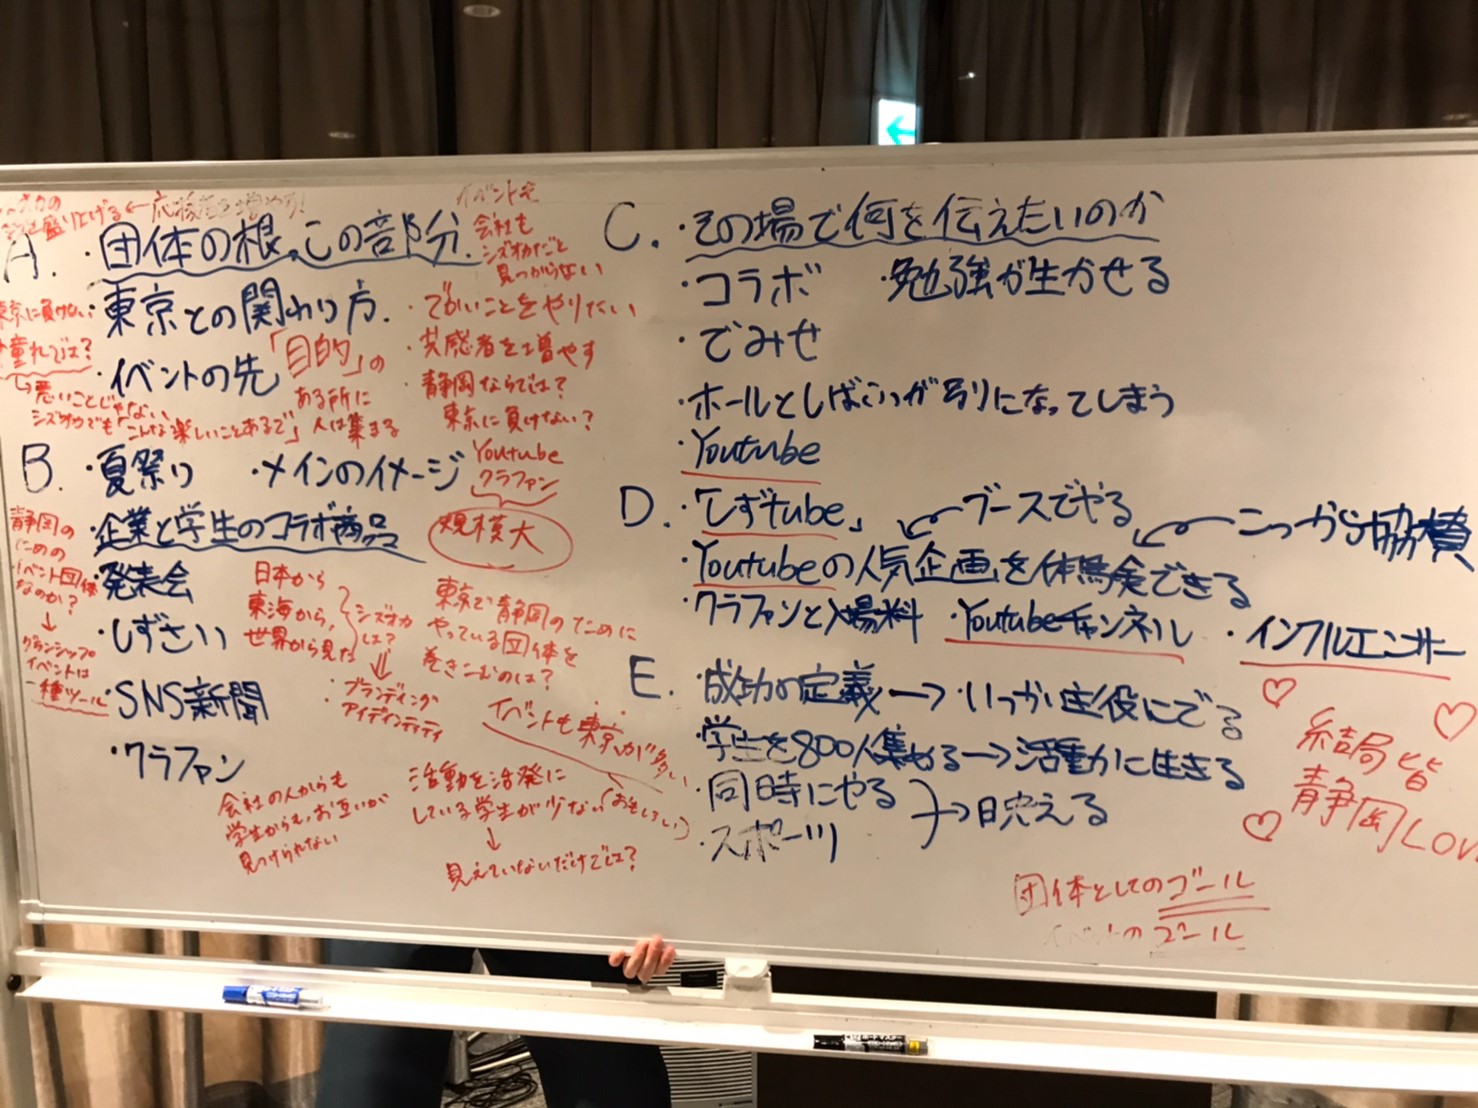 盛り上げる←応援者を増やす!
A.
・団体の根っこの部分.
東京に負けない
・東京との関わり方.
憧れでは?
・イベントの先
「目的」の
ある所に
人は集まる
↳悪いことじゃない
シズオカでも「こんな楽しいことあるで」
イベントも
会社も
シズオカだと
見つからない
・でかいことをやりたい
・共感者を増やす
・静岡ならでは?
東京に負けない?
B.
・夏祭り
・メインのイメージ
Youtube
クラファン
規模大
・企業と学生のコラボ商品
・発表会
・しずさい
・SNS新聞
・クラファン
静岡の
ための
イベント団体
なのか?
↓
グランシップ
イベントは
一種ツール
日本から
東海から,
世界から見た
シズオカ
は?
⇓
・ブランディング
・アイデンティティ
東京で静岡のために
やっている団体を
巻きこむのは?
イベントも東京が多い
会社の人からも
学生からも,お互いが
見つけられない
活動を活発に
している学生が少ない(おもしろい)
↓
見えていないだけでは?
C.
・その場で何を伝えたいのか
・コラボ
・勉強が生かせる
・でみせ
・ホールとしばふっが別になってしまう
・Youtube
D.
・「しずtube」
ブースでやる
こっから協賛
・Youtubeの人気企画を体験できる
・クラファンと入場料
・Youtubeチャンネル
・インフルエンサー
E.
・成功の定義→・いっかい主役にでる
・学生を800人集める→活動力に生きる
・同時にやる
・スポーツ
→映える
結局皆
静岡LOVE
団体としてのゴール
イベントのゴール